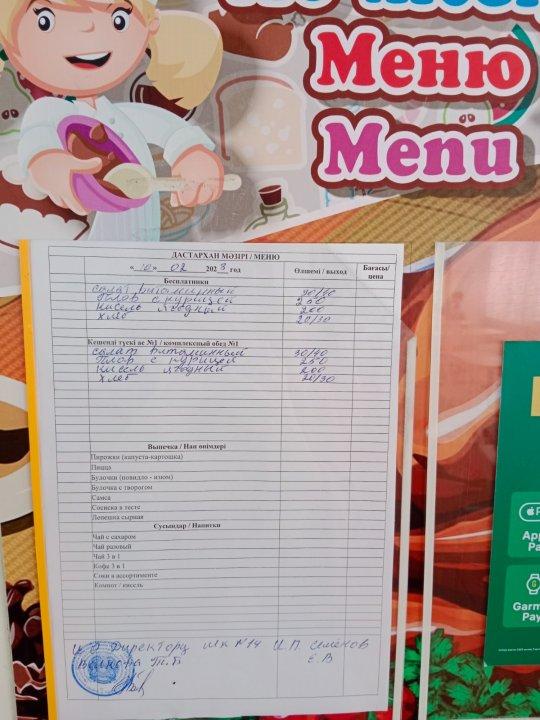 Меню
Menu
ДАСТАРХАН МӘЗІРІ / МЕНЮ
«10» 02 2023 год
Өлшемі / выход
Бағасы/ цена
Бесплатники
салат витаминный 30/40
Плов с курицей 250
кисель ягодный 200
хлеб 20/30
Кешенді түскі ас №1 / комплексный обед №1
салат витаминный 30/40
Плов с курицей 250
кисель ягодный 200
хлеб 20/30
Выпечка / Нан өнімдері
Пирожки (капуста-картошка)
Пицца
Булочки (повидло - изюм)
Булочка с творогом
Самса
Сосиска в тесте
Лепешка сырная
Сусындар / Напитки
Чай с сахаром
Чай разовый
Чай 3 в 1
Кофе 3 в 1
Соки в ассортименте
Компот / кисель
И О Директора шк №14 И.П. Семёнов
Волкова Т.Б Е.В
Garm
Pay